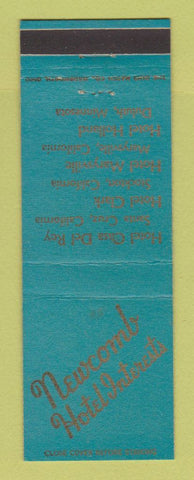 Newcomb
Hotel Interests
Hotel Casa Del Rey
Santa Cruz, California
Hotel Clark
Stockton, California
Hotel Marysville
Marysville, California
Hotel Holland
Duluth, Minnesota